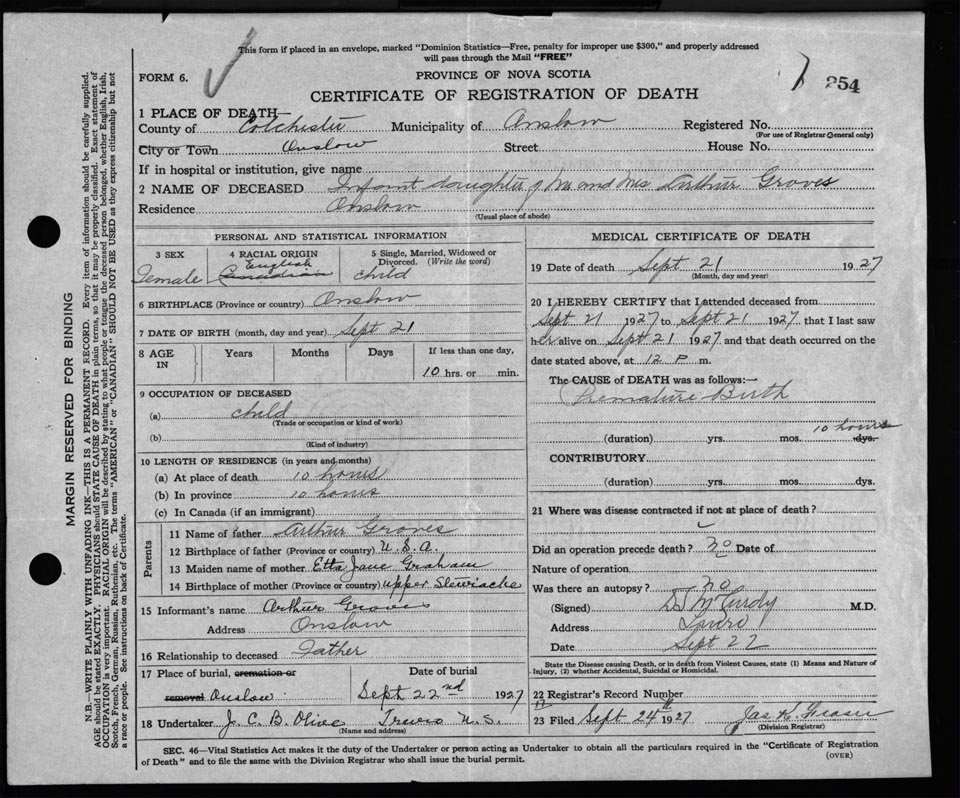 This form if placed in an envelope, marked "Dominion Statistics—Free, penalty for improper use $300," and properly addressed
will pass through the Mail "FREE"
FORM 6.
PROVINCE OF NOVA SCOTIA
254
CERTIFICATE OF REGISTRATION OF DEATH
1 PLACE OF DEATH—
County of Colchester Municipality of Onslow Registered No.
(For use of Registrar General only)
City or Town Onslow Street House No.
If in hospital or institution, give name
2 NAME OF DECEASED Infant daughter of Mr and Mrs Arthur Groves
Residence Onslow
(Usual place of abode)
PERSONAL AND STATISTICAL INFORMATION
3 SEX
Female
4 RACIAL ORIGIN
English
Canadian
5 Single, Married, Widowed or
Divorced. (Write the word)
child
6 BIRTHPLACE (Province or country) Onslow
7 DATE OF BIRTH (month, day and year) Sept 21
8 AGE
IN
Years Months Days If less than one day,
10 hrs. or min.
9 OCCUPATION OF DECEASED
(a) child
(Trade or occupation or kind of work)
(b)
(Kind of industry)
10 LENGTH OF RESIDENCE (in years and months)
(a) At place of death 10 hours
(b) In province 10 hours
(c) In Canada (if an immigrant)
Parents
11 Name of father Arthur Groves
12 Birthplace of father (Province or country) U.S.A.
13 Maiden name of mother Etta Jane Graham
14 Birthplace of mother (Province or country) Upper Stewiacke
15 Informant's name Arthur Groves
Address Onslow
16 Relationship to deceased Father
17 Place of burial, cremation or
removal Onslow
Date of burial
Sept 22nd 1927
18 Undertaker J. C. B. Olive Truro N.S.
(Name and address)
MEDICAL CERTIFICATE OF DEATH
19 Date of death Sept 21 1927
(Month, day and year)
20 I HEREBY CERTIFY that I attended deceased from
Sept 21 1927 to Sept 21 1927 that I last saw
her alive on Sept 21 1927 and that death occurred on the
date stated above, at 12 P m.
The CAUSE OF DEATH was as follows:—
Premature Birth
10 hours
(duration) yrs. mos. dys.
CONTRIBUTORY
(duration) yrs. mos. dys.
21 Where was disease contracted if not at place of death?
Did an operation precede death? No Date of
Nature of operation
Was there an autopsy? No
(Signed) McCurdy M.D.
Address Truro
Date Sept 22
State the Disease causing Death, or in death from Violent Causes, state (1) Means and Nature of
Injury, (2) whether Accidental, Suicidal or Homicidal.
22 Registrar's Record Number
23 Filed Sept 24th 1927 Jas H Fraser
(Division Registrar)
SEC. 46—Vital Statistics Act makes it the duty of the Undertaker or person acting as Undertaker to obtain all the particulars required in the "Certificate of Registration
of Death" and to file the same with the Division Registrar who shall issue the burial permit.
(OVER)
MARGIN RESERVED FOR BINDING
N.B.—WRITE PLAINLY WITH UNFADING INK—THIS IS A PERMANENT RECORD. Every item of information should be carefully supplied.
AGE should be stated EXACTLY. PHYSICIANS should STATE CAUSE OF DEATH in plain terms, so that it may be properly classified. Exact statement of
OCCUPATION is very important. RACIAL ORIGIN will be described by stating to what people or tongue the deceased person belonged, whether English, Irish,
Scotch, French, German, Russian, Ruthenian, etc. The terms "AMERICAN" or "CANADIAN" SHOULD NOT BE USED as they express citizenship but not
a race or people. See instructions on back of Certificate.